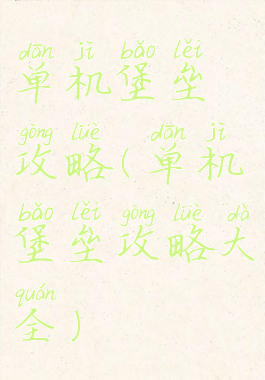 dān jī bǎo lěi
单机堡垒
gōng lüè dān jī
攻略(单机
bǎo lěi gōng lüè dà
堡垒攻略大
quán
全)